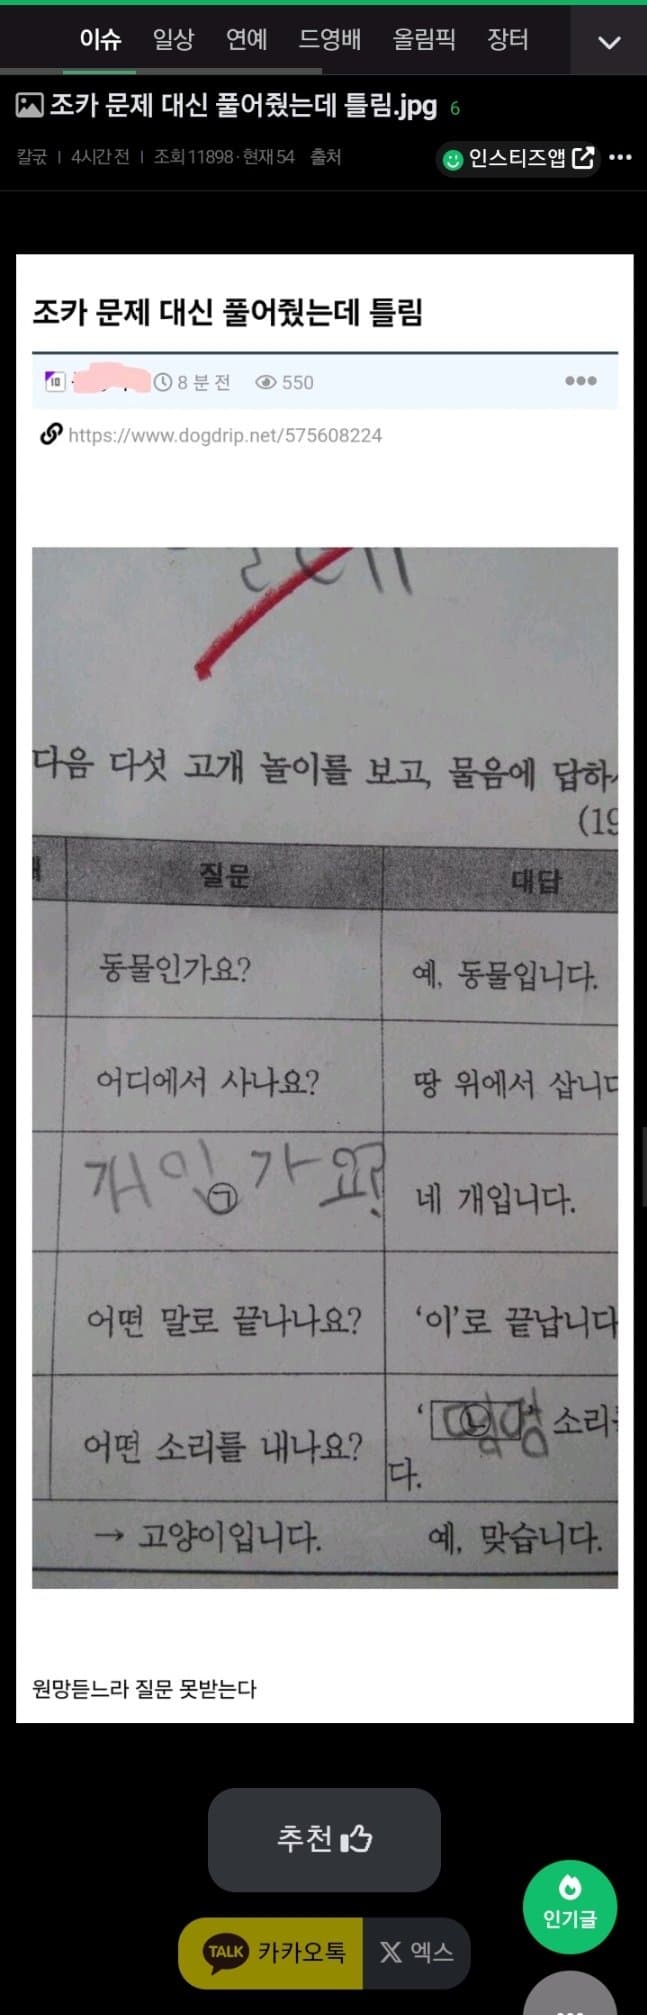 이슈 일상 연예 드영배 올림픽 장터
조카 문제 대신 풀어줬는데 틀림.jpg 6
칼귻 | 4시간 전 | 조회 11898 · 현재 54 출처
인스티즈앱
조카 문제 대신 풀어줬는데 틀림
8 분 전 550
https://www.dogdrip.net/575608224
다음 다섯 고개 놀이를 보고, 물음에 답하
(19
질문 대답
동물인가요? 예, 동물입니다.
어디에서 사나요? 땅 위에서 삽니다
개인가요? ㉠ 네 개입니다.
어떤 말로 끝나나요? ‘이’로 끝납니다
어떤 소리를 내나요? ‘㉡ 멍멍’ 소리
다.
→ 고양이입니다. 예, 맞습니다.
원망듣느라 질문 못받는다
추천
인기글
TALK 카카오톡 X 엑스